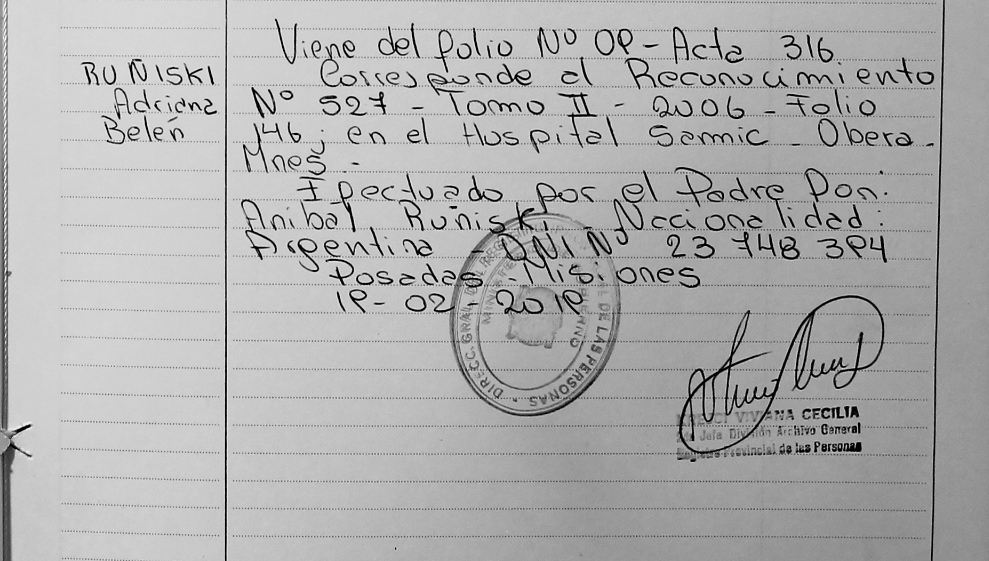 RUÑISKI
Adriana
Belén
Viene del folio Nº 09 - Acta 316.
Corresponde al Reconocimiento
Nº 527 - Tomo II - 2006 - Folio
146; en el Hospital Samic - Obera -
Mnes -
Efectuado por el Padre Don:
Anibal Ruñiski - Nacionalidad:
Argentina - DNI Nº 23 748 394
Posadas - Misiones
19 - 02 - 2019
DIRECC. GRAL. DEL REG. DE LAS PERSONAS
GOBIERNO
VIVIANA CECILIA
Jefa División Archivo General
Registro Provincial de las Personas